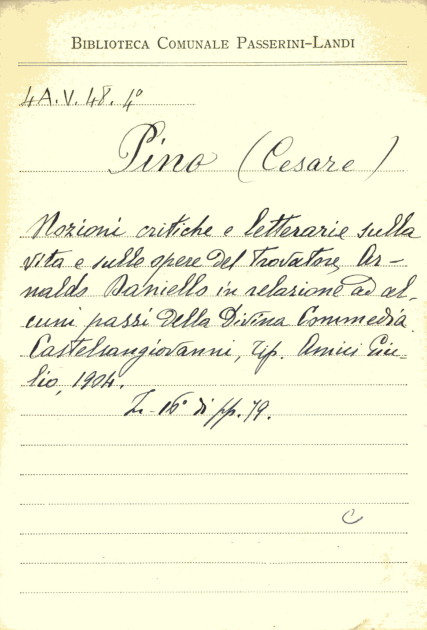 BIBLIOTECA COMUNALE PASSERINI-LANDI
4A.V.48.4°
Pino (Cesare)
Nozioni critiche e letterarie sulla
vita e sulle opere del Trovatore Ar-
naldo Daniello in relazione ad al-
cuni passi della Divina Commedia.
Castelsangiovanni, Tip. Amici Giu-
lio, 1904.
In-16° di pp. 79.
C